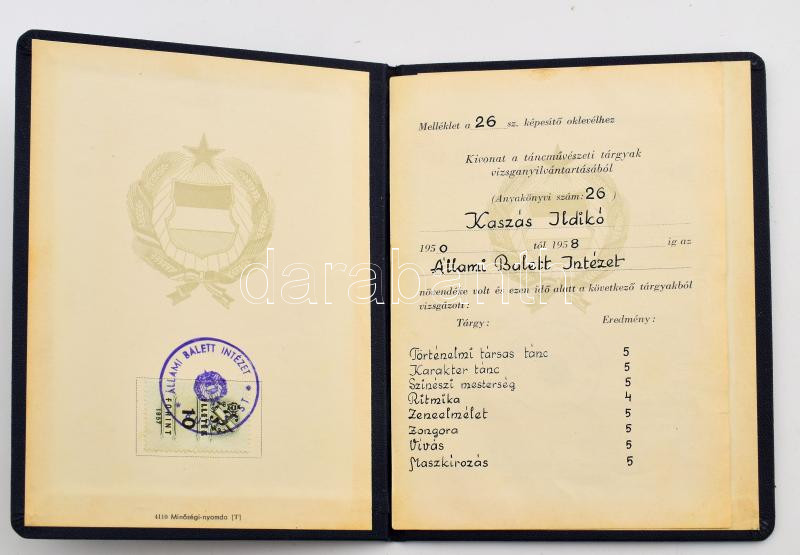 ÁLLAMI BALETT INTÉZET
10
FORINT
1957
4110 Minőségi-nyomda (T)
Melléklet a 26 sz. képesítő oklevélhez
Kivonat a táncművészeti tárgyak
vizsganyilvántartásából
(Anyakönyvi szám: 26 )
Kaszás Ildikó
1950 től 1958 ig az
Állami Balett Intézet
növendéke volt és ezen idő alatt a következő tárgyakból
vizsgázott:
Tárgy: Eredmény:
Történelmi társas tánc 5
Karakter tánc 5
Színészi mesterség 5
Ritmika 4
Zeneelmélet 5
Zongora 5
Vívás 5
Maszkírozás 5
darabanth